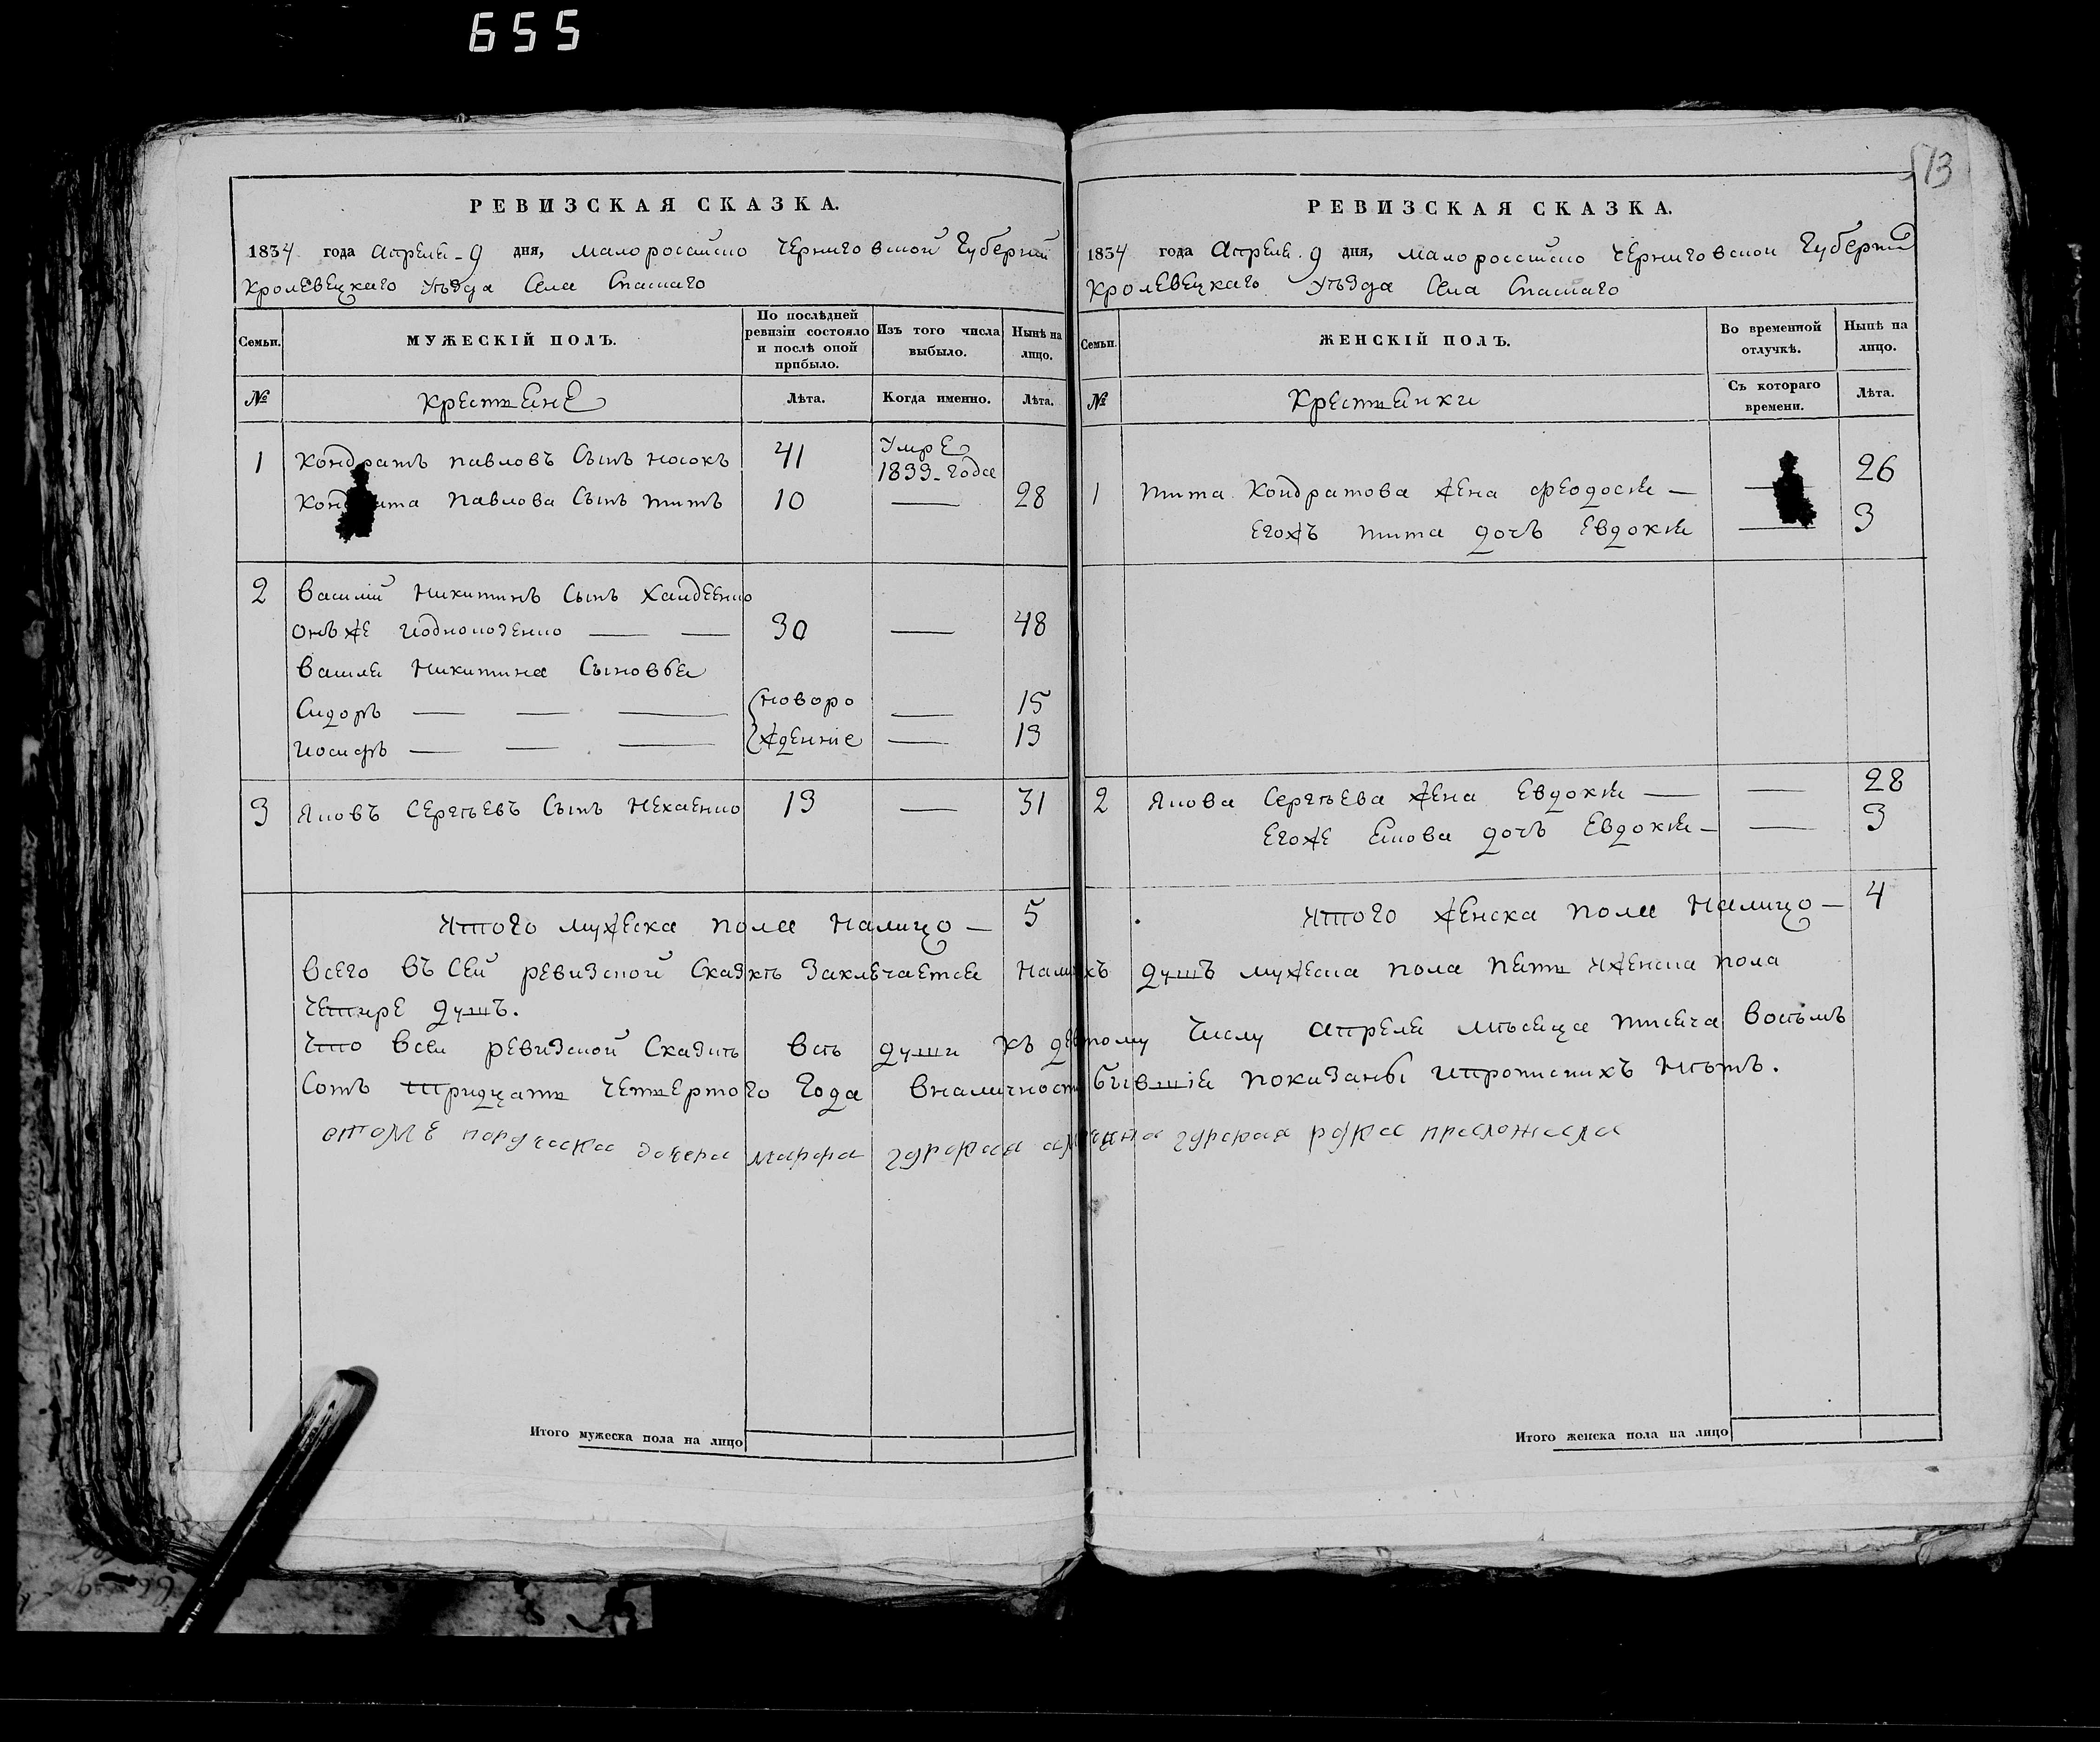 655
573
РЕВИЗСКАЯ СКАЗКА.
1834 года Апреля 9 дня, Малоросийско Черниговской Губернии
Кролевецкаго уѣзда Села Спаского
Семьи.
МУЖЕСКІЙ ПОЛЪ.
По послѣдней ревизіи состояло и послѣ оной прибыло.
Изъ того числа выбыло.
Нынѣ на лицо.
№
Крестьяне
Лѣта.
Когда именно.
Лѣта.
1 Кондратъ Павловъ Сынъ Носокъ 41 Умре 1833 года
Кондрата Павлова Сынъ Титъ 10 — 28
2 Василий Никитинъ Сынъ Хандеенко
онъ же — — 30 — 48
Василя Никитина Сыновья
Сидоръ — — — новоро — 15
Иосифъ — — — жденніе — 13
3 Яковъ Сергѣевъ Сынъ Нехаенко 13 — 31
Итого мужеска пола налицо — 5
РЕВИЗСКАЯ СКАЗКА.
1834 года Апреля 9 дня, Малоросийско Черниговской Губернии
Кролевецкаго Уѣзда Села Спаского
Семьи.
ЖЕНСКІЙ ПОЛЪ.
Во временной отлучкѣ.
Нынѣ на лицо.
№
Крестьянки
Съ котораго времени.
Лѣта.
1 Тита Кондратова жена Феодосия — — 26
Егожъ Тита дочъ Евдокия — 3
2 Якова Сергѣева жена Евдокия — — 28
Егоже Якова дочъ Евдокия — — 3
Итого женска пола налицо — 4
Всего въ сей ревизской Сказкѣ заключается налицъ душъ мужеска пола пять иженска пола
четире душъ.
Что всей ревизской Сказкѣ всѣ души къ девятому числу Апреля мѣсяца тисяча восѣмъ
сотъ тридцать четвертого года вналичности бывшія показаны ипрописнихъ нѣтъ.
жена Марфа рука приложила
Итого мужеска пола на лицо
Итого женска пола на лицо